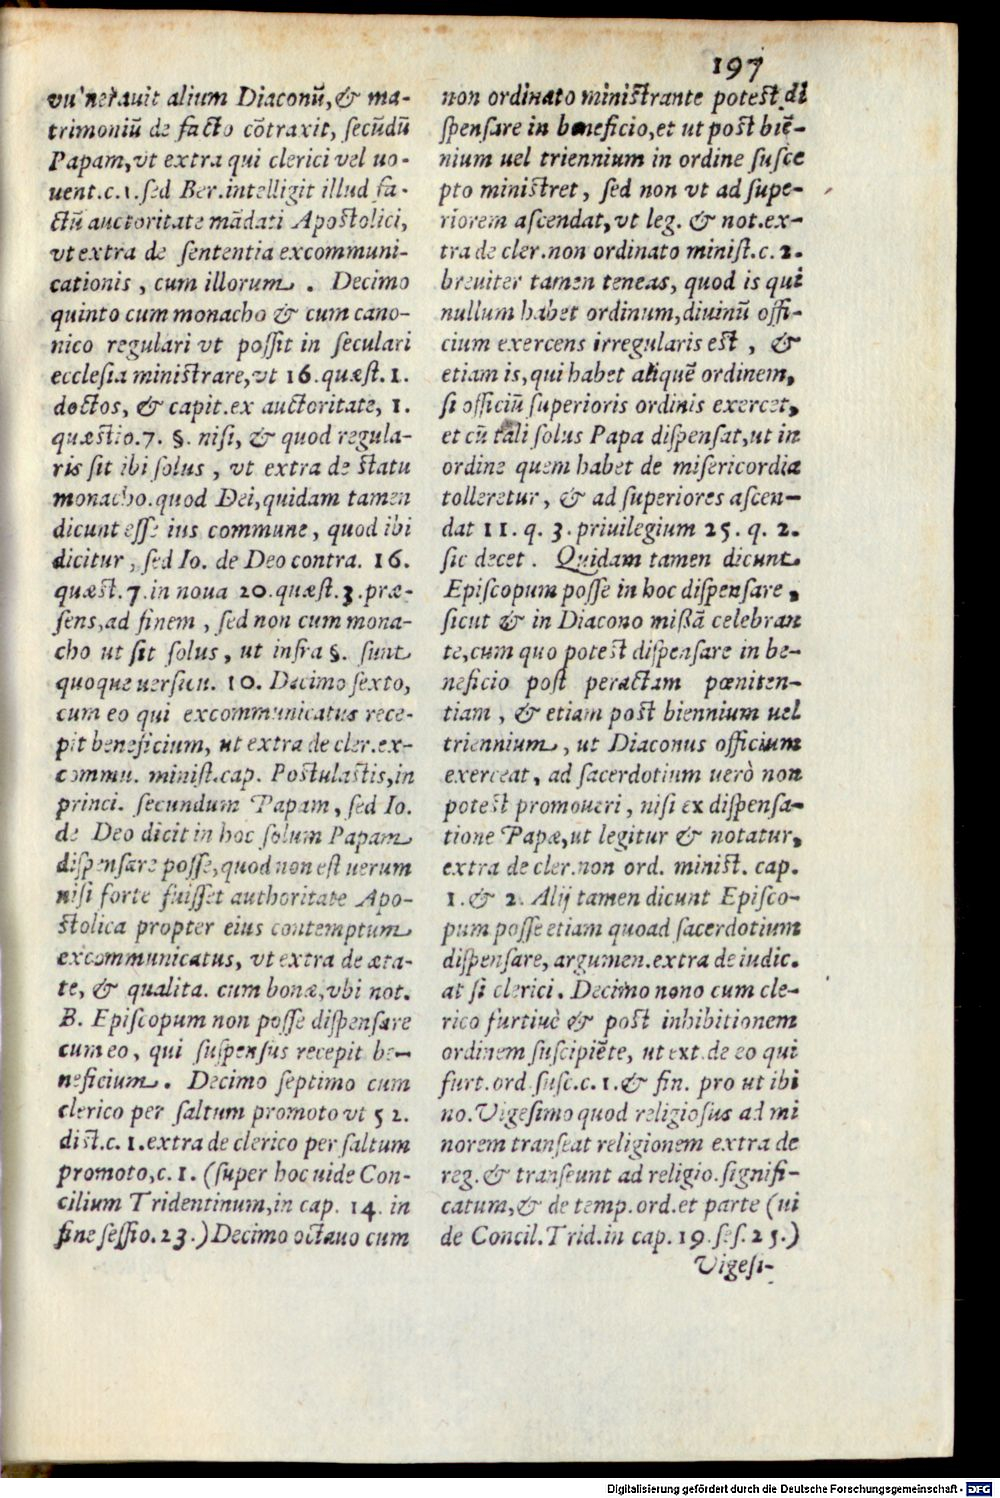 197
vulnerauit alium Diaconũ, & ma-
trimoniũ de facto cõtraxit, secũdũ
Papam, vt extra qui clerici vel uo-
uent.c.1.sed Ber.intelligit illud fa-
ctũ auctoritate mãdati Apostolici,
vt extra de sententia excommuni-
cationis, cum illorum. Decimo
quinto cum monacho & cum cano-
nico regulari vt possit in seculari
ecclesia ministrare, vt 16.quæst.1.
doctos, & capit.ex auctoritate, 1.
quæstio.7. §. nisi, & quod regula-
ris sit ibi solus, vt extra de statu
monacho.quod Dei, quidam tamen
dicunt esse ius commune, quod ibi
dicitur, sed Io. de Deo contra. 16.
quæst.7.in noua 20.quæst.3.præ-
sens, ad finem, sed non cum mona-
cho ut sit solus, ut infra §. sunt
quoque uersicu. 10. Decimo sexto,
cum eo qui excommunicatus rece-
pit beneficium, ut extra de cler.ex-
commu. minist.cap. Postulastis, in
princi. secundum Papam, sed Io.
de Deo dicit in hoc solum Papam
dispensare posse, quod non est uerum
nisi forte fuisset authoritate Apo-
stolica propter eius contemptum
excommunicatus, vt extra de æta-
te, & qualita. cum bonæ, vbi not.
B. Episcopum non posse dispensare
cum eo, qui suspensus recepit be-
neficium. Decimo septimo cum
clerico per saltum promoto vt 52.
dist.c.1.extra de clerico per saltum
promoto, c.1. (super hoc uide Con-
cilium Tridentinum, in cap. 14. in
fine sessio.23.) Decimo octauo cum
non ordinato ministrante potest di
spensare in beneficio, et ut post biẽ-
nium uel triennium in ordine susce
pto ministret, sed non vt ad supe-
riorem ascendat, vt leg. & not.ex-
tra de cler.non ordinato minist.c.2.
breuiter tamen teneas, quod is qui
nullum habet ordinum, diuinũ offi-
cium exercens irregularis est, &
etiam is, qui habet aliquẽ ordinem,
si officiũ superioris ordinis exercet,
et cũ tali solus Papa dispensat, ut in
ordine quem habet de misericordia
tolleretur, & ad superiores ascen-
dat 11. q. 3. priuilegium 25. q. 2.
sic decet. Quidam tamen dicunt
Episcopum posse in hoc dispensare,
sicut & in Diacono missã celebran
te, cum quo potest dispensare in be-
neficio post peractam pœniten-
tiam, & etiam post biennium uel
triennium, ut Diaconus officium
exerceat, ad sacerdotium uerò non
potest promoueri, nisi ex dispensa-
tione Papæ, ut legitur & notatur,
extra de cler.non ord. minist. cap.
1. & 2. Alij tamen dicunt Episco-
pum posse etiam quoad sacerdotium
dispensare, argumen.extra de iudic.
at si clerici. Decimo nono cum cle-
rico furtiuè & post inhibitionem
ordinem suscipiẽte, ut ext.de eo qui
furt.ord.susc.c.1.& fin. pro ut ibi
no. Vigesimo quod religiosus ad mi
norem transeat religionem extra de
reg. & transeunt ad religio.signifi-
catum, & de temp.ord.et parte (ui
de Concil.Trid.in cap.19.ses.25.)
Vigesi-
Digitalisierung gefördert durch die Deutsche Forschungsgemeinschaft - DFG